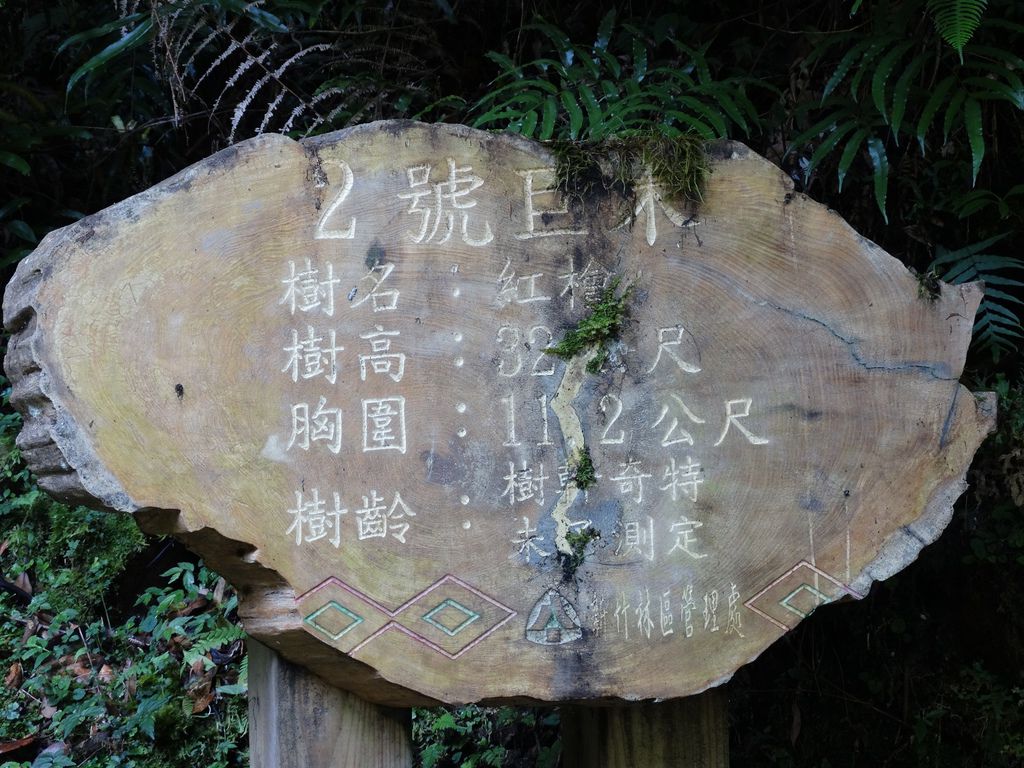 2號巨木
樹名：紅檜
樹高：32公尺
胸圍：11.2公尺
樹齡：樹幹奇特
未予測定
新竹林區管理處